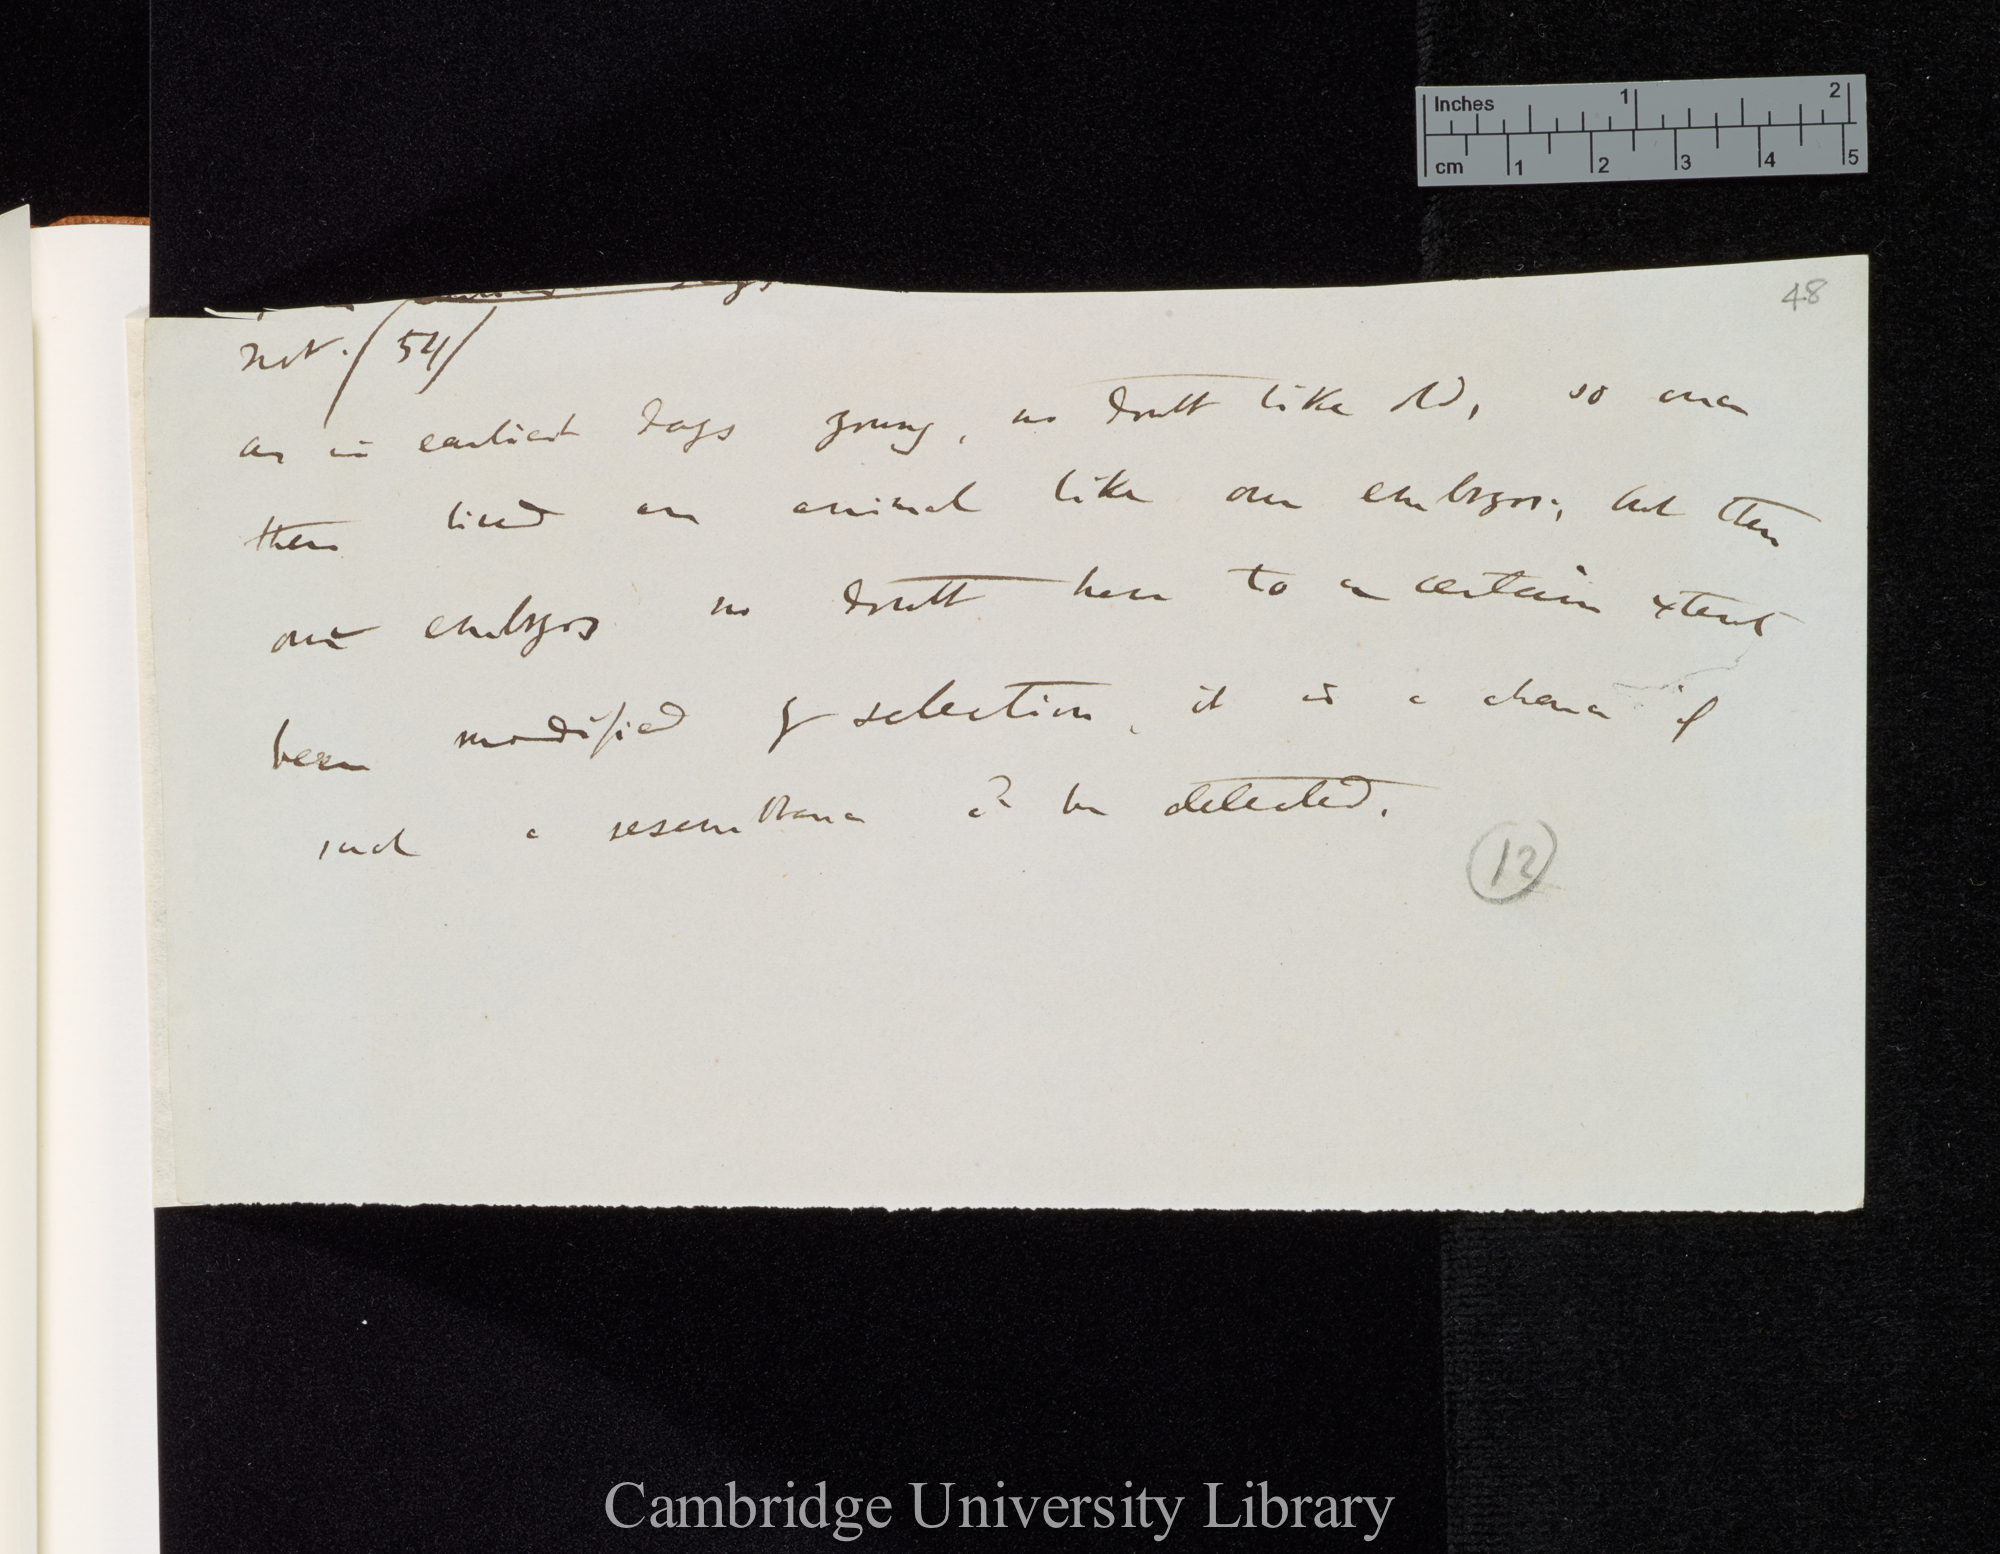 Inches 1 2
cm 1 2 3 4 5
48
not. / 54 /
as in earliest days young, no doubt like old, so once
there lived an animal like our embryos; but then
our embryos no doubt have to a certain xtent
been modified by selection, it is a chance if
such a resemblance cd be detected.
12
Cambridge University Library